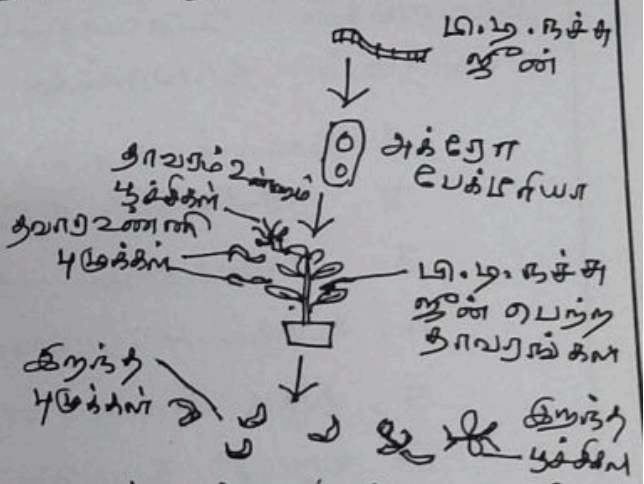 பி.டி.நச்சு
ஜீன்
அக்ரோ
பேக்டீரியா
தாவரம் உண்ணும்
பூச்சிகள்
தவார உண்ணி
புழுக்கள்
பி.டி.நச்சு
ஜீன் பெற்ற
தாவரங்கள்
இறந்த
புழுக்கள்
இறந்த
பூச்சிகள்